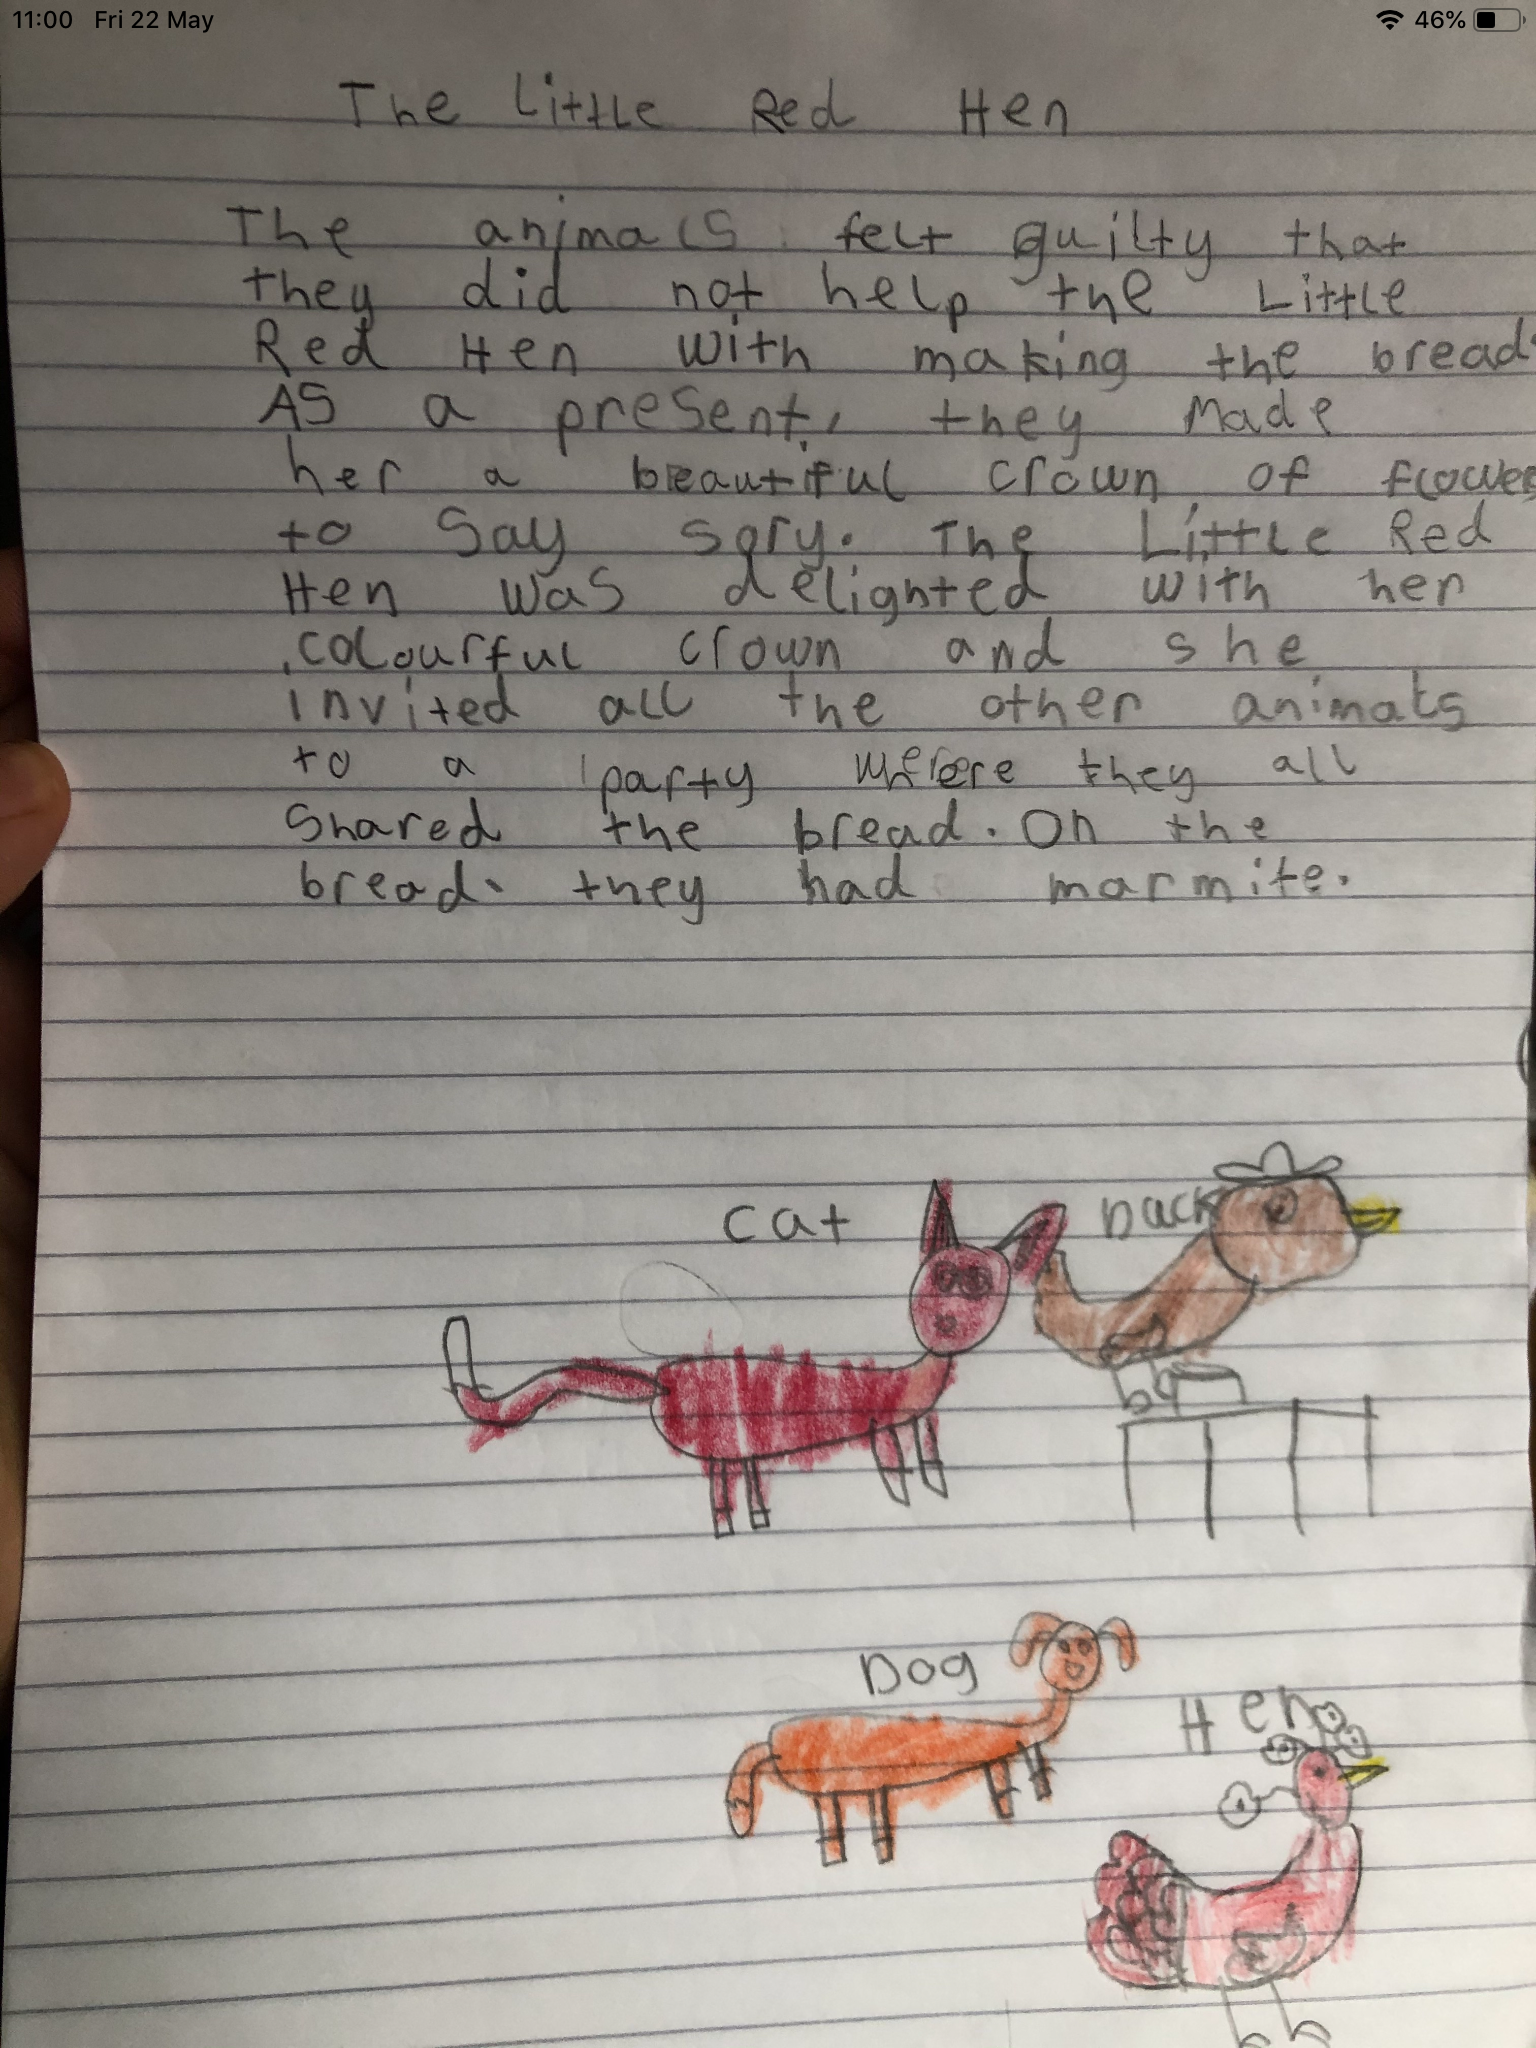 11:00 Fri 22 May 46%
The Little Red Hen
The animals felt guilty that
they did not help the Little
Red Hen with making the bread.
As a present, they made
her a beautiful crown of flowers
to say sory. The Little Red
Hen was delighted with her
colourful crown and she
invited all the other animals
to a party where they all
shared the bread. On the
bread. they had marmite.
cat
Duck
Dog
Hen